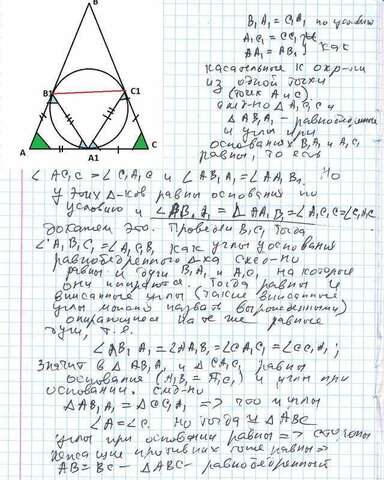 B
B1
C1
A
A1
C
B₁A₁ = C₁A₁ по условию
A₁C = CC₁ и
AA₁ = AB₁ как
касательные к окр-ти
из одной точки
(точек A и C)
след-но ΔA₁C₁C и
ΔAB₁A₁ - равнобедренные
и углы при
основаниях B₁A₁ и A₁C₁
равны, то есть
∠A₁C₁C = ∠C₁A₁C и ∠AB₁A₁ = ∠AA₁B₁. Но
у этих Δ-ков равны основания по
условию и ∠AB₁A₁ = ∠AA₁B₁ = ∠A₁C₁C =
докажем это. Провели B₁C₁ тогда
∠A₁B₁C₁ = ∠A₁C₁B₁ как углы у основания
равнобедренного Δ-ка след-но
равны и дуги B₁A₁ и A₁C₁ на которые
они опираются. Тогда равны и
вписанные углы (такие вписанные
углы можно назвать вырожденными)
опирающиеся на те же равные
дуги, т.е.
∠AB₁A₁ = ∠AA₁B₁ = ∠CA₁C₁ = ∠CC₁A₁;
Значит в ΔAB₁A₁ и ΔCA₁C₁ равны
основание (A₁B₁ = A₁C₁) и углы при
основании. след-но
ΔAB₁A₁ = ΔCC₁A₁ => что и углы
∠A = ∠C. Но тогда у ΔABC
углы при основании равны => стороны
лежащие против них тоже равны =>
AB = BC - ΔABC - равнобедренный